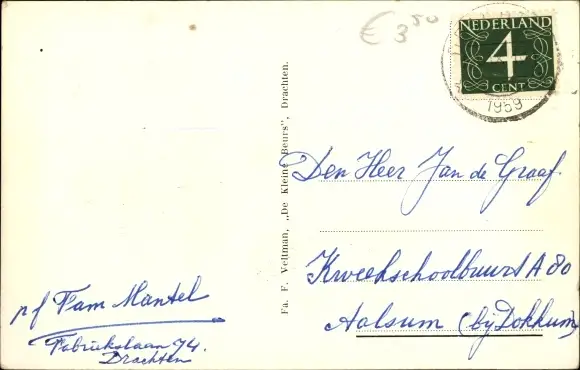 € 3 50
NEDERLAND
4
CENT
1959
Fa. F. Veltman, „De Kleine Beurs", Drachten.
Den Heer Jan de Graaf.
Kweekschoolbuurt A 80
Aalsum (bij Dokkum)
pf Fam Mantel
Fabriekslaan 74.
Drachten